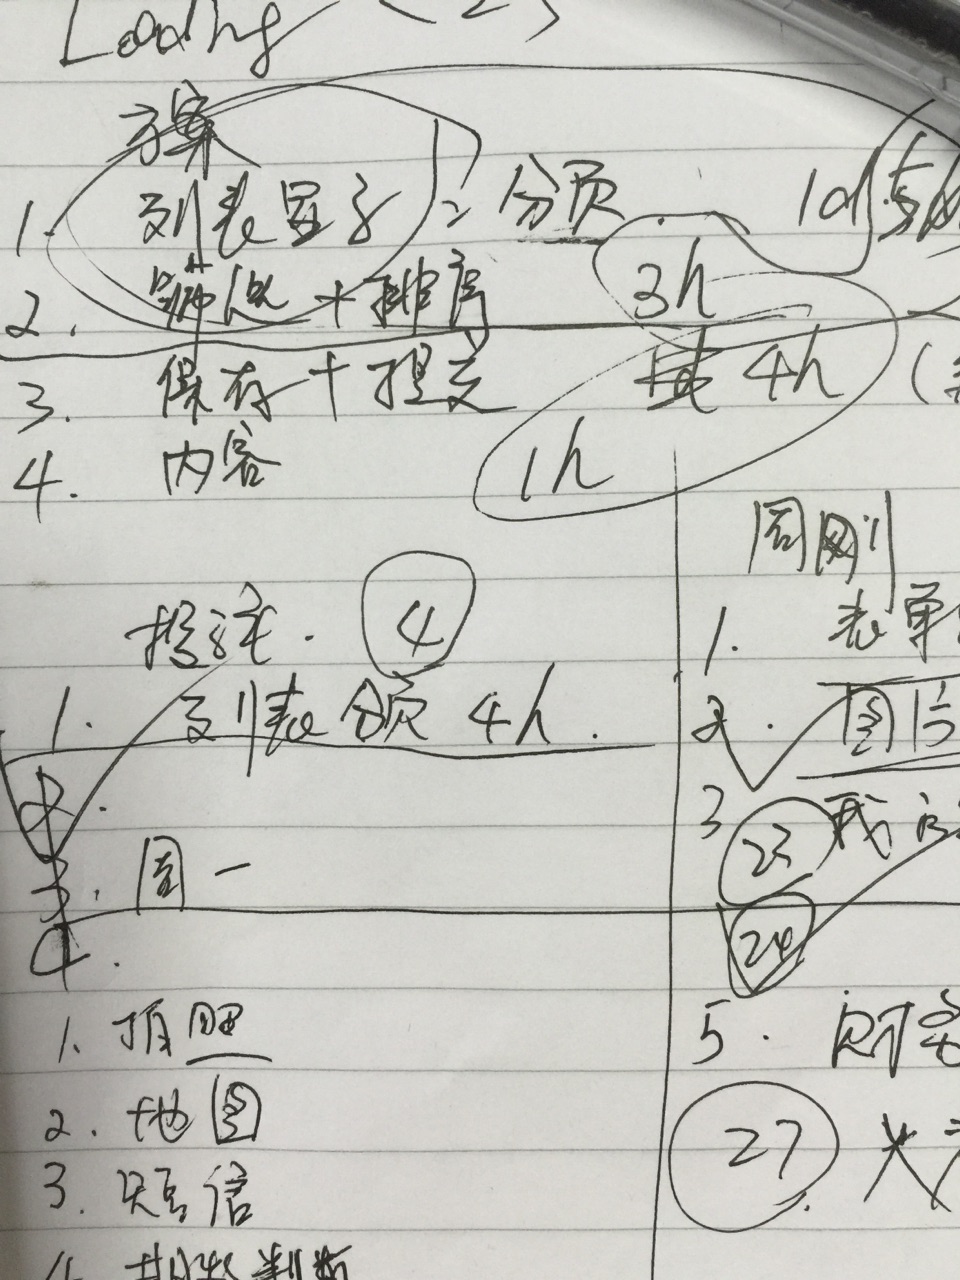 Loading (2)
方案
1. 列表显示 : 分页 1d
2. 编辑 + 排序 3h
3. 保存 + 提交 4h (
4. 内容 1h
投诉. 4
1. 列表分页 4h.
2.
3. 周一
4.
1. 拍照
2. 地图
3. 短信
周刚
1. 表单
2. 图片
3 23 我的
24
5.
27